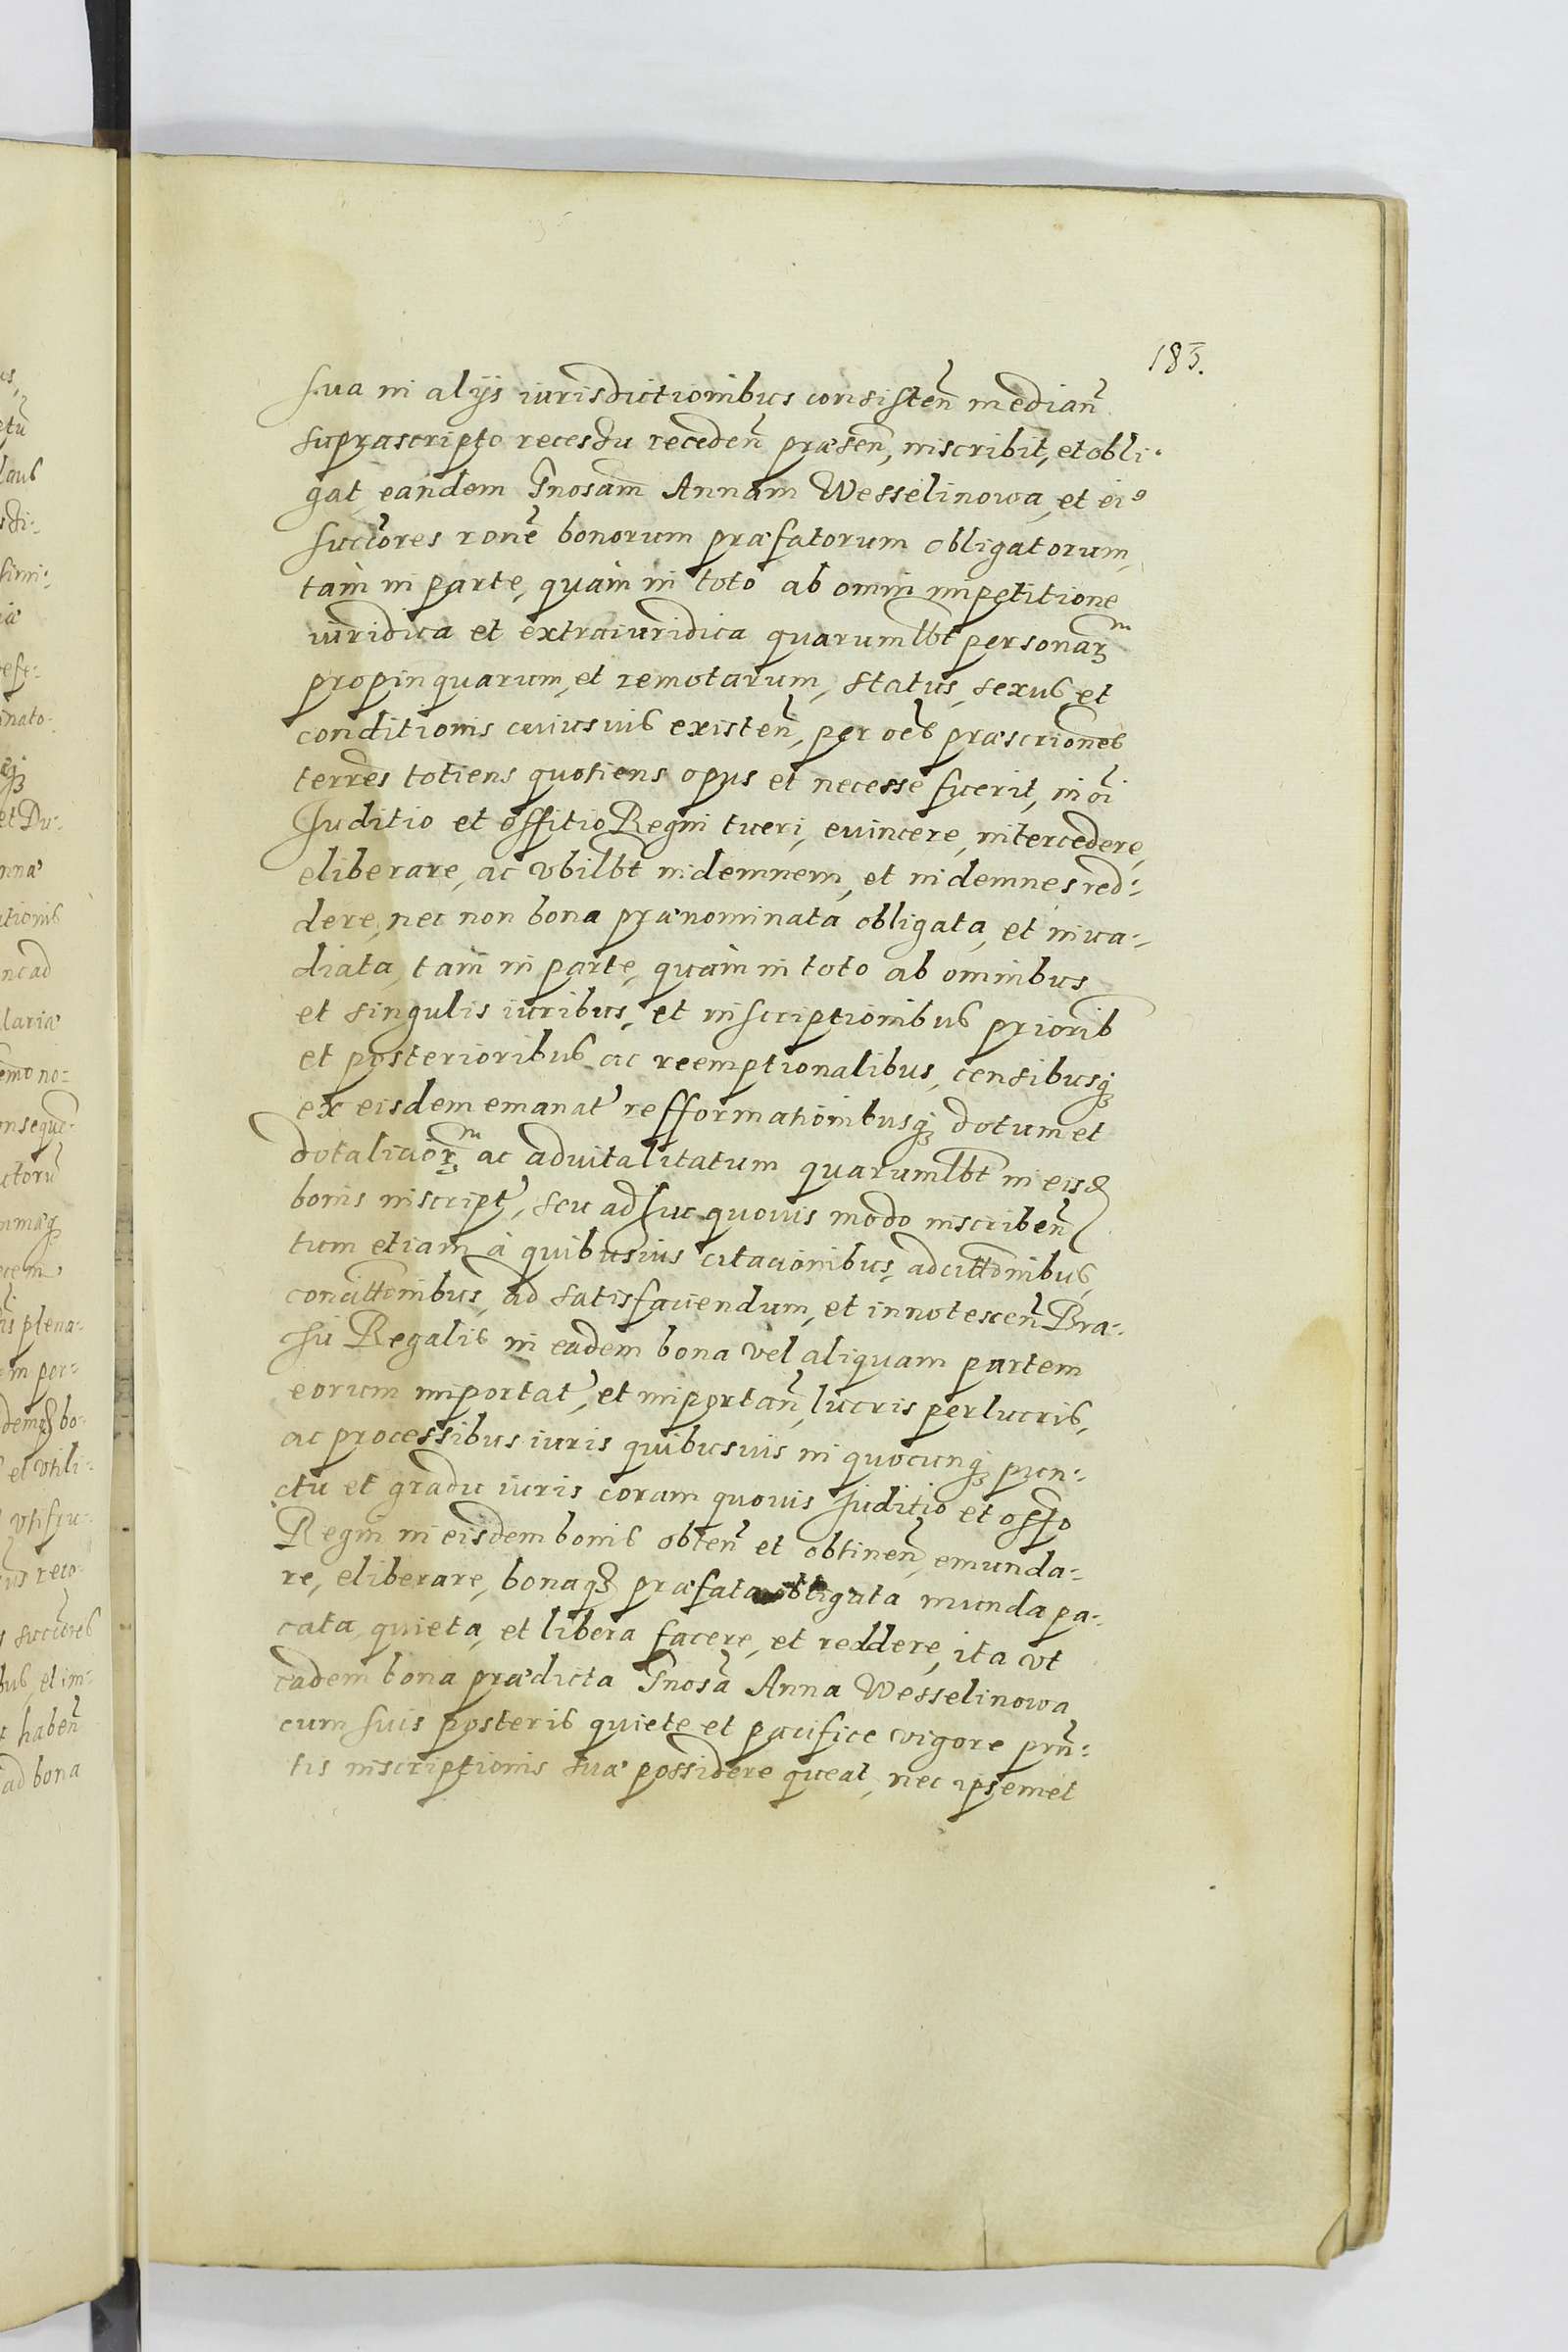 183.
sua in alijs iurisdictionibus consisten̄ median̄
suprascripto recessu receden̄ præsen̄, inscribit, et obli:
gat eandem Gnosam Annam Wesselinowa, et ei9
succōres ronē bonorum præfatorum obligatorum,
tam in parte, quam in toto ab omni impetitione
iuridica et extraiuridica quarumlbt personar̄m
propinquarum, et remotarum, status, sexus et
conditionis cuiusuis existen̄, per oēs præscriōnes
terrēs totiens quotiens opus et necesse fuerit, in oī
Juditio et offitio Regni tueri, euincere, intercedere,
eliberare, ac vbilbt indemnem, et indemnes red:
dere, nec non bona prænominata obligata, et inua:
diata, tam in parte, quam in toto ab omnibus
et singulis iuribus, et inscriptionibus priorib
et posterioribus ac reemptionalibus, censibusq3
ex eisdem emanat' refformationibusq3 dotum et
dotalicior̄m ac aduitalitatum quarumlbt in eisd
bonis inscript', seu adhuc quouis modo inscriben̄
tum etiam à quibusuis citacionibus, adcittōnibus,
concittōnibus, ad satisfaciendum, et innotescen̄ Bra:
chii Regalis in eadem bona vel aliquam partem
eorum importat', et importan̄, lucris perlucris,
ac processibus iuris quibusuis in quocunq3 pun:
ctu et gradu iuris coram quouis Juditio et offo
Regni in eisdem bonis obten̄ et obtinen̄, emunda:
re, eliberare, bonaq3 præfata obligata munda pa:
cata, quieta, et libera facere, et reddere, ita vt
eadem bona prædicta Gnosa Anna Wesselinowa
cum suis posteris quiete et pacifice vigore prn̄:
tis inscriptionis suæ possidere queat, nec ipsemet